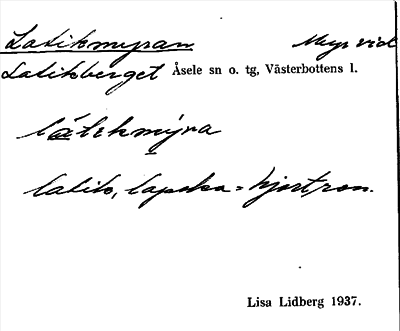 Latikmyran Myr vid
Latikberget Åsele sn o. tg, Västerbottens l.
látikmyra
latik, lapska = hjortron.
Lisa Lidberg 1937.